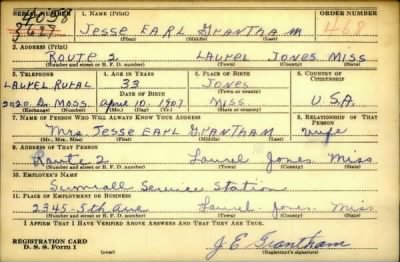 SERIAL NUMBER 1. NAME (Print) ORDER NUMBER
4058
3627 Jesse EARL GRANTHAM 468
(First) (Middle) (Last)
2. ADDRESS (Print)
ROUTE 2 LAUREL JONES MISS
(Number and street or R. F. D. number) (Town) (County) (State)
3. TELEPHONE 4. AGE IN YEARS 5. PLACE OF BIRTH 6. COUNTRY OF CITIZENSHIP
LAUREL RURAL 33 JONES
DATE OF BIRTH (Town or county)
April 10, 1907 MISS U.S.A.
(Exchange) (Number) (Mo.) (Day) (Yr.) (State or country)
7. NAME OF PERSON WHO WILL ALWAYS KNOW YOUR ADDRESS 8. RELATIONSHIP OF THAT PERSON
Mrs. Jesse EARL GRANTHAM wife
(Mr., Mrs., Miss) (First) (Middle) (Last)
9. ADDRESS OF THAT PERSON
Route 2 Laurel Jones Miss.
(Number and street or R. F. D. number) (Town) (County) (State)
10. EMPLOYER'S NAME
Sumrall Service Station
11. PLACE OF EMPLOYMENT OR BUSINESS
2345-5th Ave Laurel Jones Miss
(Number and street or R. F. D. number) (Town) (County) (State)
I AFFIRM THAT I HAVE VERIFIED ABOVE ANSWERS AND THAT THEY ARE TRUE.
REGISTRATION CARD
D. S. S. Form 1 J E Grantham
(Registrant's signature)